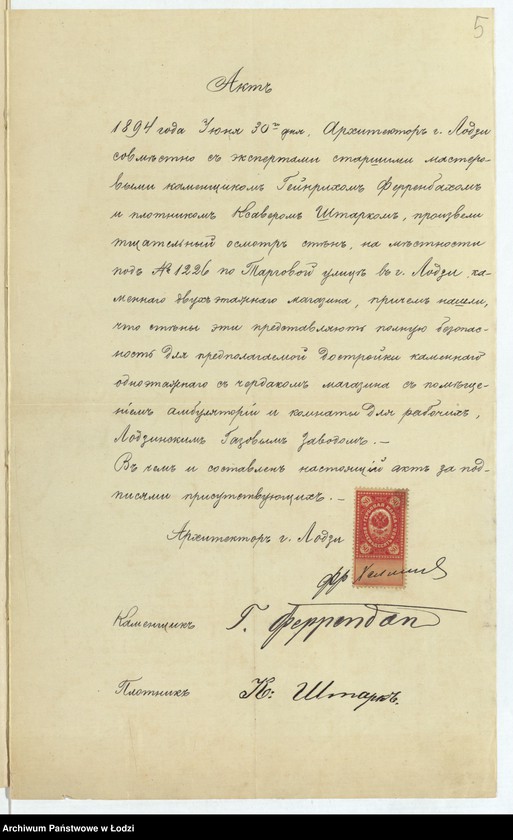 5
Актъ
1894 года Іюня 30го дня, Архитекторъ г. Лодзи
совмѣстно съ экспертами старшими мастеро-
выми каменщикомъ Гейнрихомъ Ферренбахомъ
и плотникомъ Ксаверомъ Штаркомъ, произвели
тщательный осмотръ стѣнъ, на мѣстности
подъ № 1226 по Тарговой улицѣ въ г. Лодзи, ка-
меннаго двухъэтажнаго магазина, причемъ нашли,
что стѣны эти представляютъ полную безопас-
ность для предполагаемой достройки каменнаго
одноэтажнаго съ чердакомъ магазина съ помѣще-
ніемъ амбуляторіи и комнаты для рабочихъ,
Лодзинскимъ Газовымъ Заводомъ. –
Въ чемъ и составленъ настоящій актъ за под-
писями присутствующихъ. –
Архитекторъ г. Лодзи
Каменщикъ Г.
Плотникъ К: Штаркъ.
Archiwum Państwowe w Łodzi